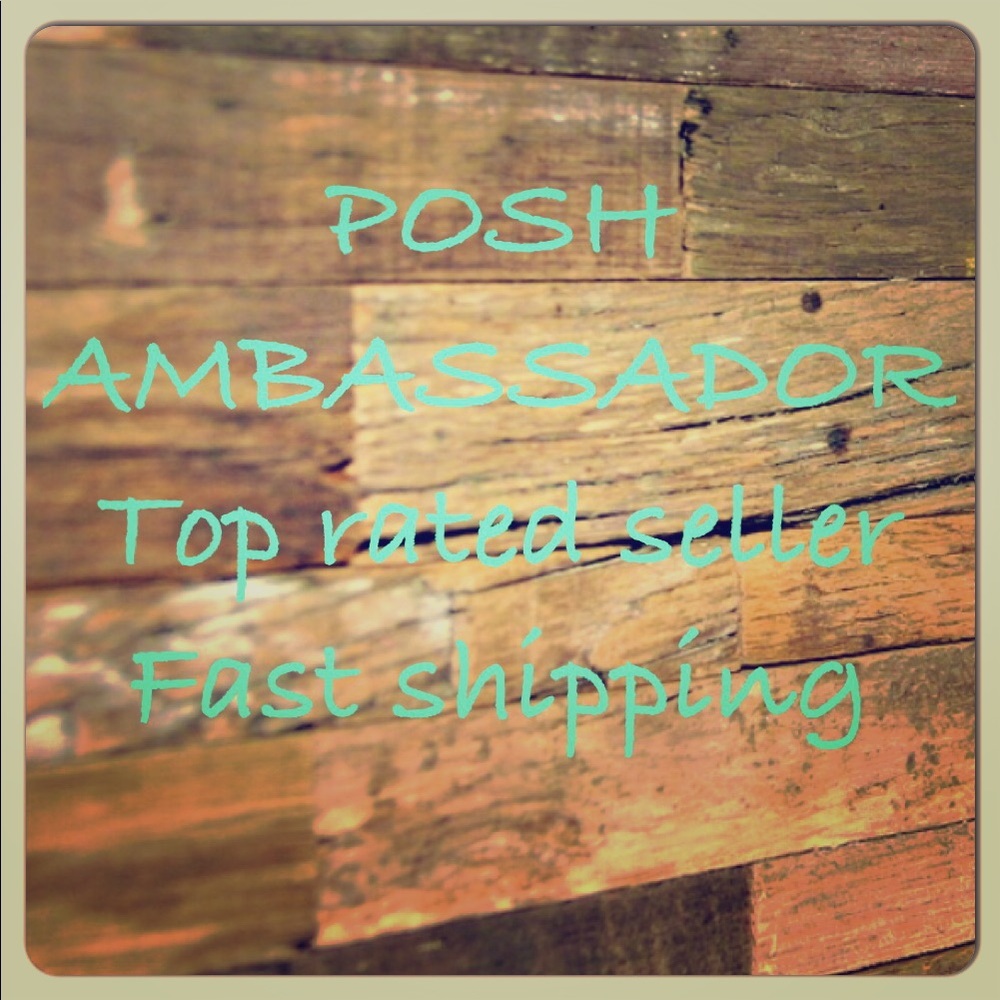 POSH
AMBASSADOR
Top rated seller
Fast shipping